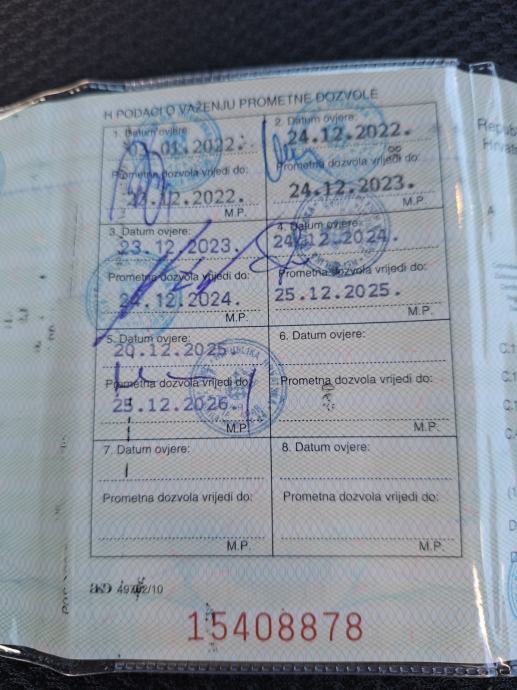 H PODACI O VAŽENJU PROMETNE DOZVOLE
1. Datum ovjere:
01.2022.
Prometna dozvola vrijedi do:
12.2022.
M.P.
2. Datum ovjere:
24.12.2022.
Prometna dozvola vrijedi do:
24.12.2023.
M.P.
3. Datum ovjere:
23.12.2023.
Prometna dozvola vrijedi do:
24.12.2024.
M.P.
4. Datum ovjere:
24.12.2024.
Prometna dozvola vrijedi do:
25.12.2025.
M.P.
5. Datum ovjere:
20.12.2025
Prometna dozvola vrijedi do:
25.12.2026.
M.P.
6. Datum ovjere:
Prometna dozvola vrijedi do:
M.P.
7. Datum ovjere:
Prometna dozvola vrijedi do:
M.P.
8. Datum ovjere:
Prometna dozvola vrijedi do:
M.P.
15408878